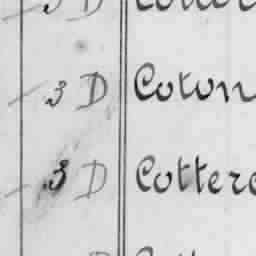 3 D Coton
3 D Cottere